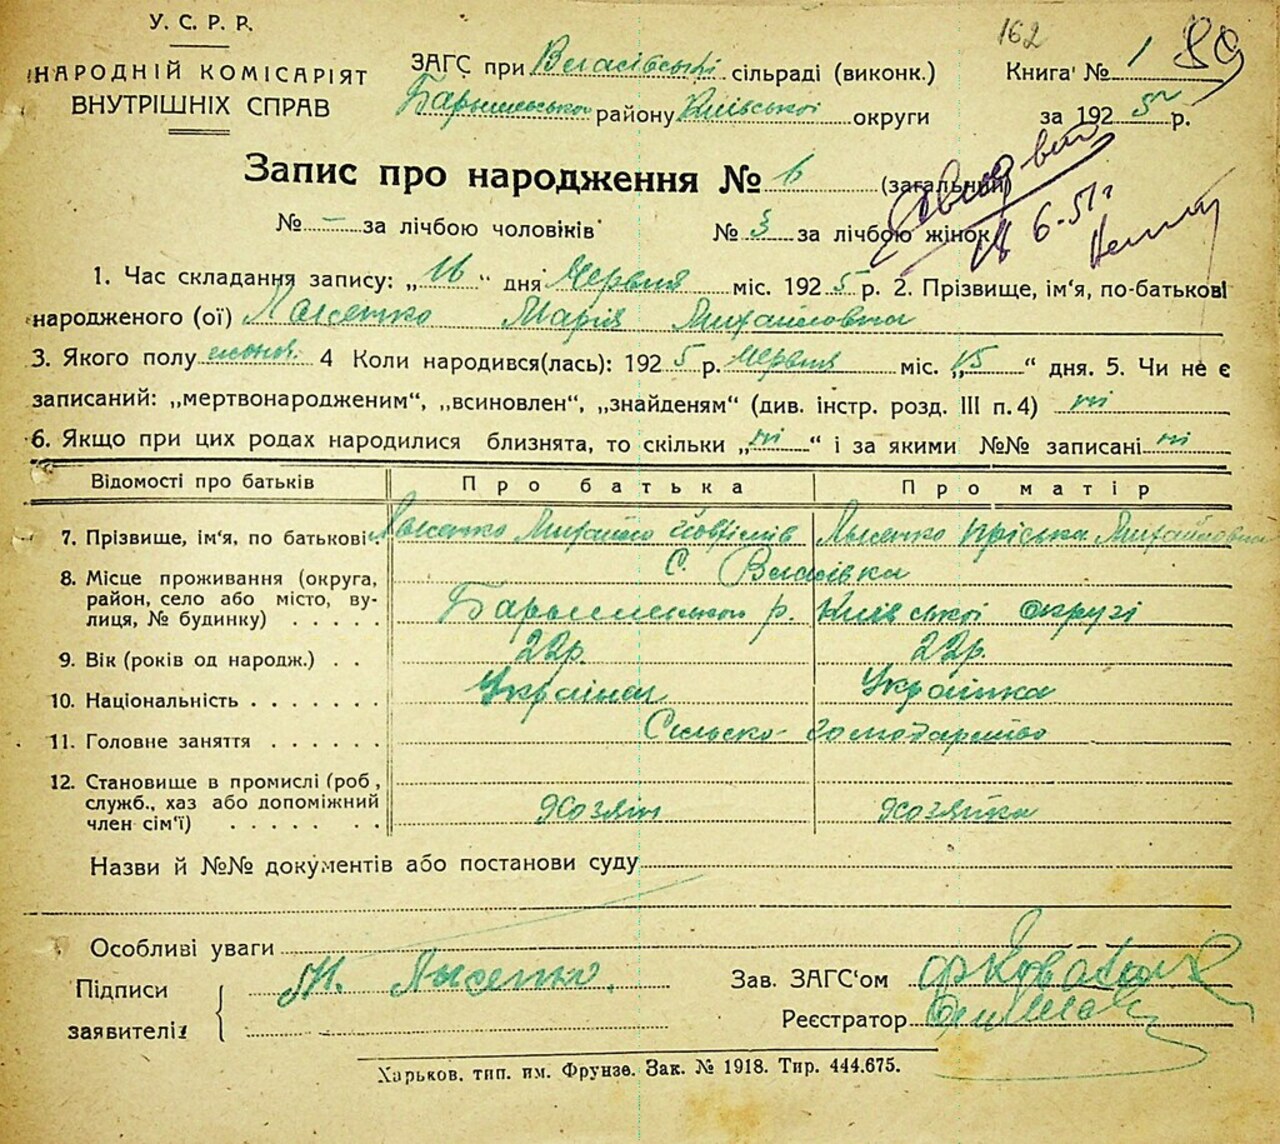 У. С. Р. Р.
НАРОДНІЙ КОМІСАРІЯТ
ВНУТРІШНІХ СПРАВ
162
ЗАГС при Власівській сільраді (виконк.)
Баришевського району Київської округи
Книга № 1 89
за 1925 р.
Запис про народження № 6 (загальний)
№ — за лічбою чоловіків № 3 за лічбою жінок
6-51 г
1. Час складання запису: „16“ дня Червня міс. 1925 р. 2. Прізвище, ім'я, по-батькові
народженого (ої) Лысенко Марія Михайловна
3. Якого полу женск. 4 Коли народився(лась): 1925 р. Червня міс. „15“ дня. 5. Чи не є
записаний: „мертвонародженим“, „всиновлен“, „знайденям“ (див. інстр. розд. III п. 4) ні
6. Якщо при цих родах народилися близнята, то скільки „ні“ і за якими №№ записані ні
Відомості про батьків Про батька Про матір
7. Прізвище, ім'я, по батькові Лысенко Михайло Лысенко Пріська Михайловна
8. Місце проживання (округа, район, село або місто, вулиця, № будинку) с. Власівка
Баришевського р. Київської округі
9. Вік (років од народж.) 22 р. 22 р.
10. Національність Українец Українка
11. Головне заняття Сельско-господарство
12. Становище в промислі (роб, служб., хаз або допоміжний член сім'ї) Хозяін Хозяйка
Назви й №№ документів або постанови суду
Особливі уваги
Підписи заявителів М. Лысенко.
Зав. ЗАГС'ом
Реєстратор
Харьков. тип. им. Фрунзе. Зак. № 1918. Тир. 444.675.